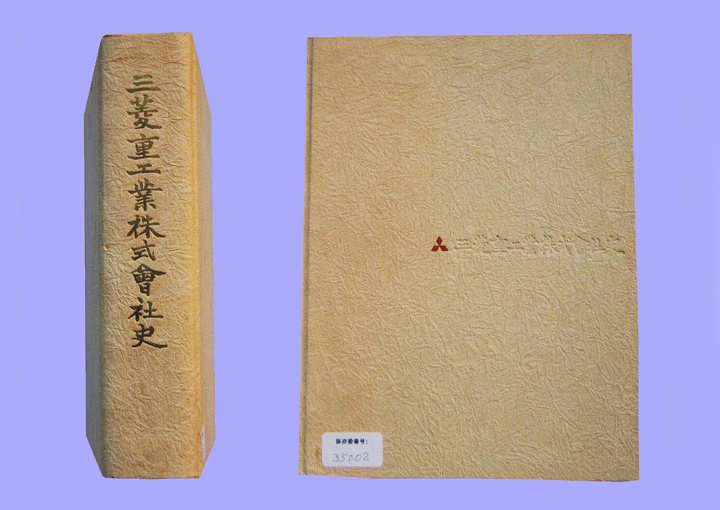 三菱重工業株式會社史
三菱重工業株式會社史
保存番番号:
35002